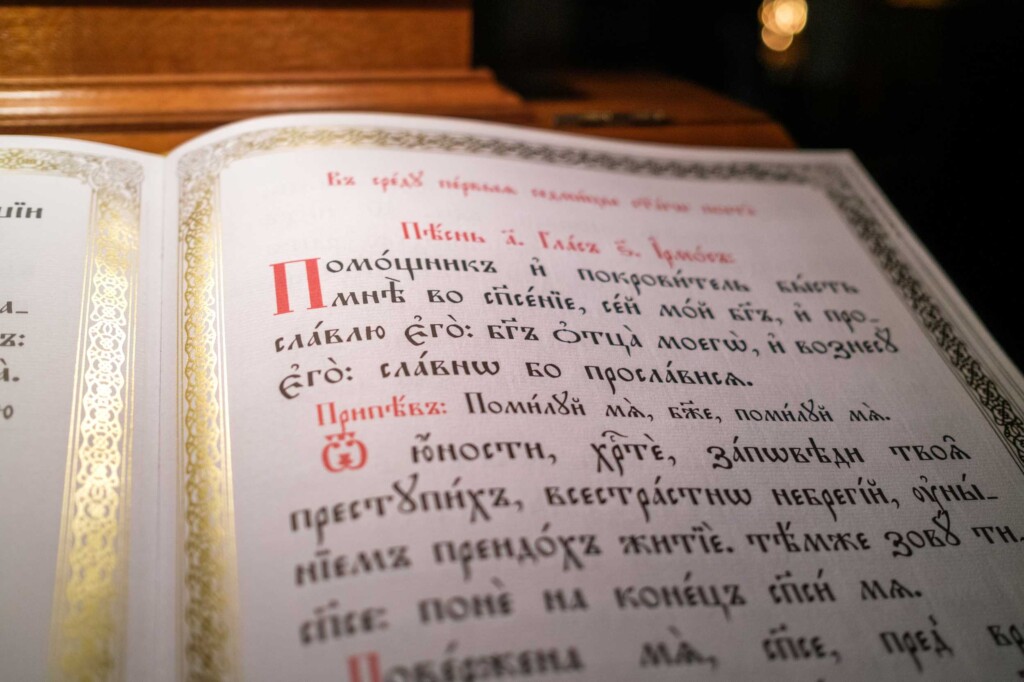 шїн
Въ сре́дꙋ пе́рвыѧ седми́цы
Пѣ́снь а҃. Гла́съ ѕ҃. І҆рмо́съ:
Помо́щникъ и҆ покрови́тель бы́сть
мнѣ̀ во сп҃се́нїе, се́й мо́й бг҃ъ, и҆ про-
сла́влю є҆го̀: бг҃ъ ѻ҆тца̀ моегѡ̀, и҆ вознесꙋ̀
є҆го̀: сла́внѡ бо просла́висѧ.
Припѣ́въ: Поми́лꙋй мѧ̀, бж҃е, поми́лꙋй мѧ̀.
Ѿ ю҆́ности, хрⷭ҇тѐ, за́пѡвѣди твоѧ̑
престꙋпи́хъ, всестра́стнѡ небрегі́й, ᲂу҆ны́-
нїемъ преидо́хъ житїѐ. тѣ́мже зовꙋ́ ти,
сп҃се: понѐ на коне́цъ сп҃си́ мѧ.
Пове́ржена мѧ̀, сп҃се, пред̾